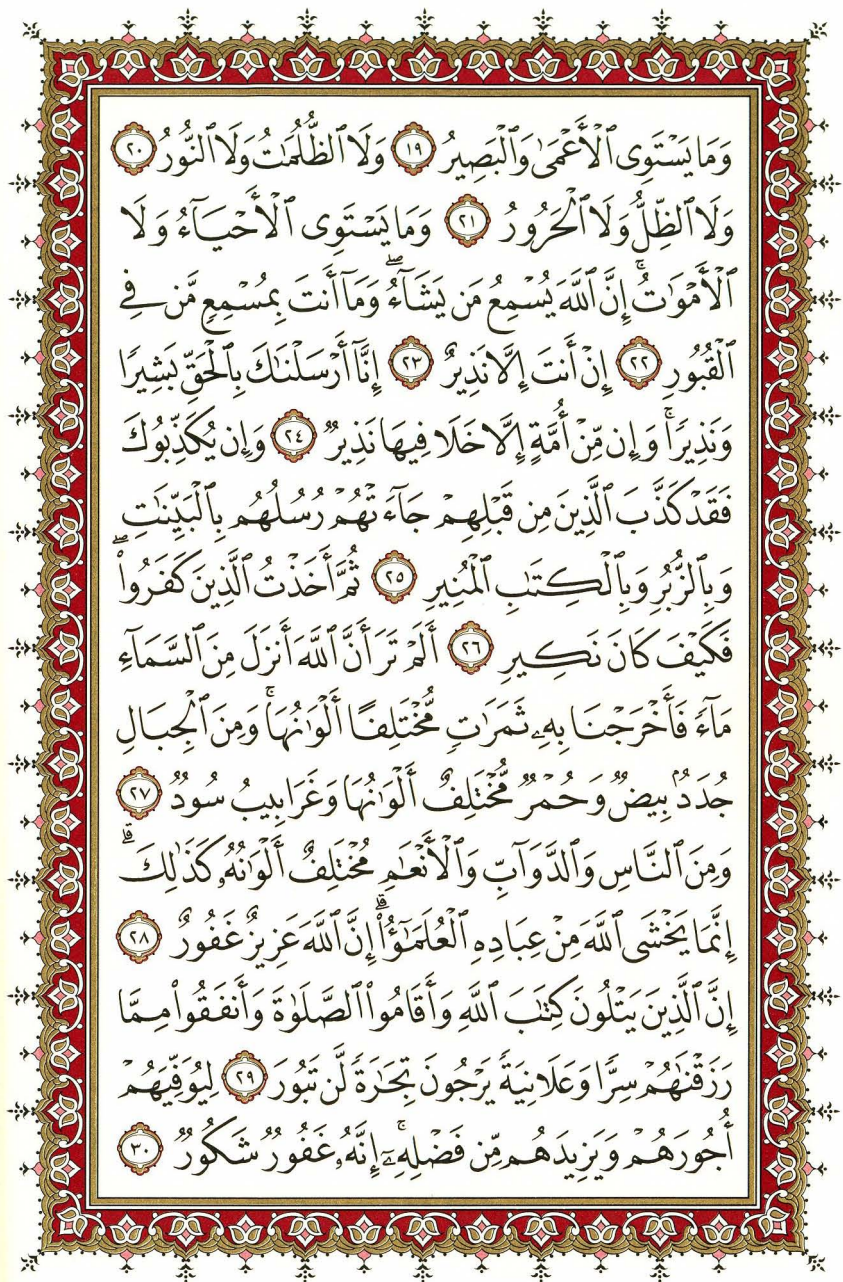 وَمَا يَسْتَوِى ٱلْأَعْمَىٰ وَٱلْبَصِيرُ ١٩ وَلَا ٱلظُّلُمَٰتُ وَلَا ٱلنُّورُ ٢٠
وَلَا ٱلظِّلُّ وَلَا ٱلْحَرُورُ ٢١ وَمَا يَسْتَوِى ٱلْأَحْيَآءُ وَلَا
ٱلْأَمْوَٰتُ ۚ إِنَّ ٱللَّهَ يُسْمِعُ مَن يَشَآءُ ۖ وَمَآ أَنتَ بِمُسْمِعٍ مَّن فِى
ٱلْقُبُورِ ٢٢ إِنْ أَنتَ إِلَّا نَذِيرٌ ٢٣ إِنَّآ أَرْسَلْنَٰكَ بِٱلْحَقِّ بَشِيرًا
وَنَذِيرًا ۚ وَإِن مِّنْ أُمَّةٍ إِلَّا خَلَا فِيهَا نَذِيرٌ ٢٤ وَإِن يُكَذِّبُوكَ
فَقَدْ كَذَّبَ ٱلَّذِينَ مِن قَبْلِهِمْ جَآءَتْهُمْ رُسُلُهُم بِٱلْبَيِّنَٰتِ
وَبِٱلزُّبُرِ وَبِٱلْكِتَٰبِ ٱلْمُنِيرِ ٢٥ ثُمَّ أَخَذْتُ ٱلَّذِينَ كَفَرُوا۟ ۖ
فَكَيْفَ كَانَ نَكِيرِ ٢٦ أَلَمْ تَرَ أَنَّ ٱللَّهَ أَنزَلَ مِنَ ٱلسَّمَآءِ
مَآءً فَأَخْرَجْنَا بِهِۦ ثَمَرَٰتٍ مُّخْتَلِفًا أَلْوَٰنُهَا ۚ وَمِنَ ٱلْجِبَالِ
جُدَدٌۢ بِيضٌ وَحُمْرٌ مُّخْتَلِفٌ أَلْوَٰنُهَا وَغَرَابِيبُ سُودٌ ٢٧
وَمِنَ ٱلنَّاسِ وَٱلدَّوَآبِّ وَٱلْأَنْعَٰمِ مُخْتَلِفٌ أَلْوَٰنُهُۥ كَذَٰلِكَ ۗ
إِنَّمَا يَخْشَى ٱللَّهَ مِنْ عِبَادِهِ ٱلْعُلَمَٰٓؤُا۟ ۗ إِنَّ ٱللَّهَ عَزِيزٌ غَفُورٌ ٢٨
إِنَّ ٱلَّذِينَ يَتْلُونَ كِتَٰبَ ٱللَّهِ وَأَقَامُوا۟ ٱلصَّلَوٰةَ وَأَنفَقُوا۟ مِمَّا
رَزَقْنَٰهُمْ سِرًّا وَعَلَانِيَةً يَرْجُونَ تِجَٰرَةً لَّن تَبُورَ ٢٩ لِيُوَفِّيَهُمْ
أُجُورَهُمْ وَيَزِيدَهُم مِّن فَضْلِهِۦٓ ۚ إِنَّهُۥ غَفُورٌ شَكُورٌ ٣٠